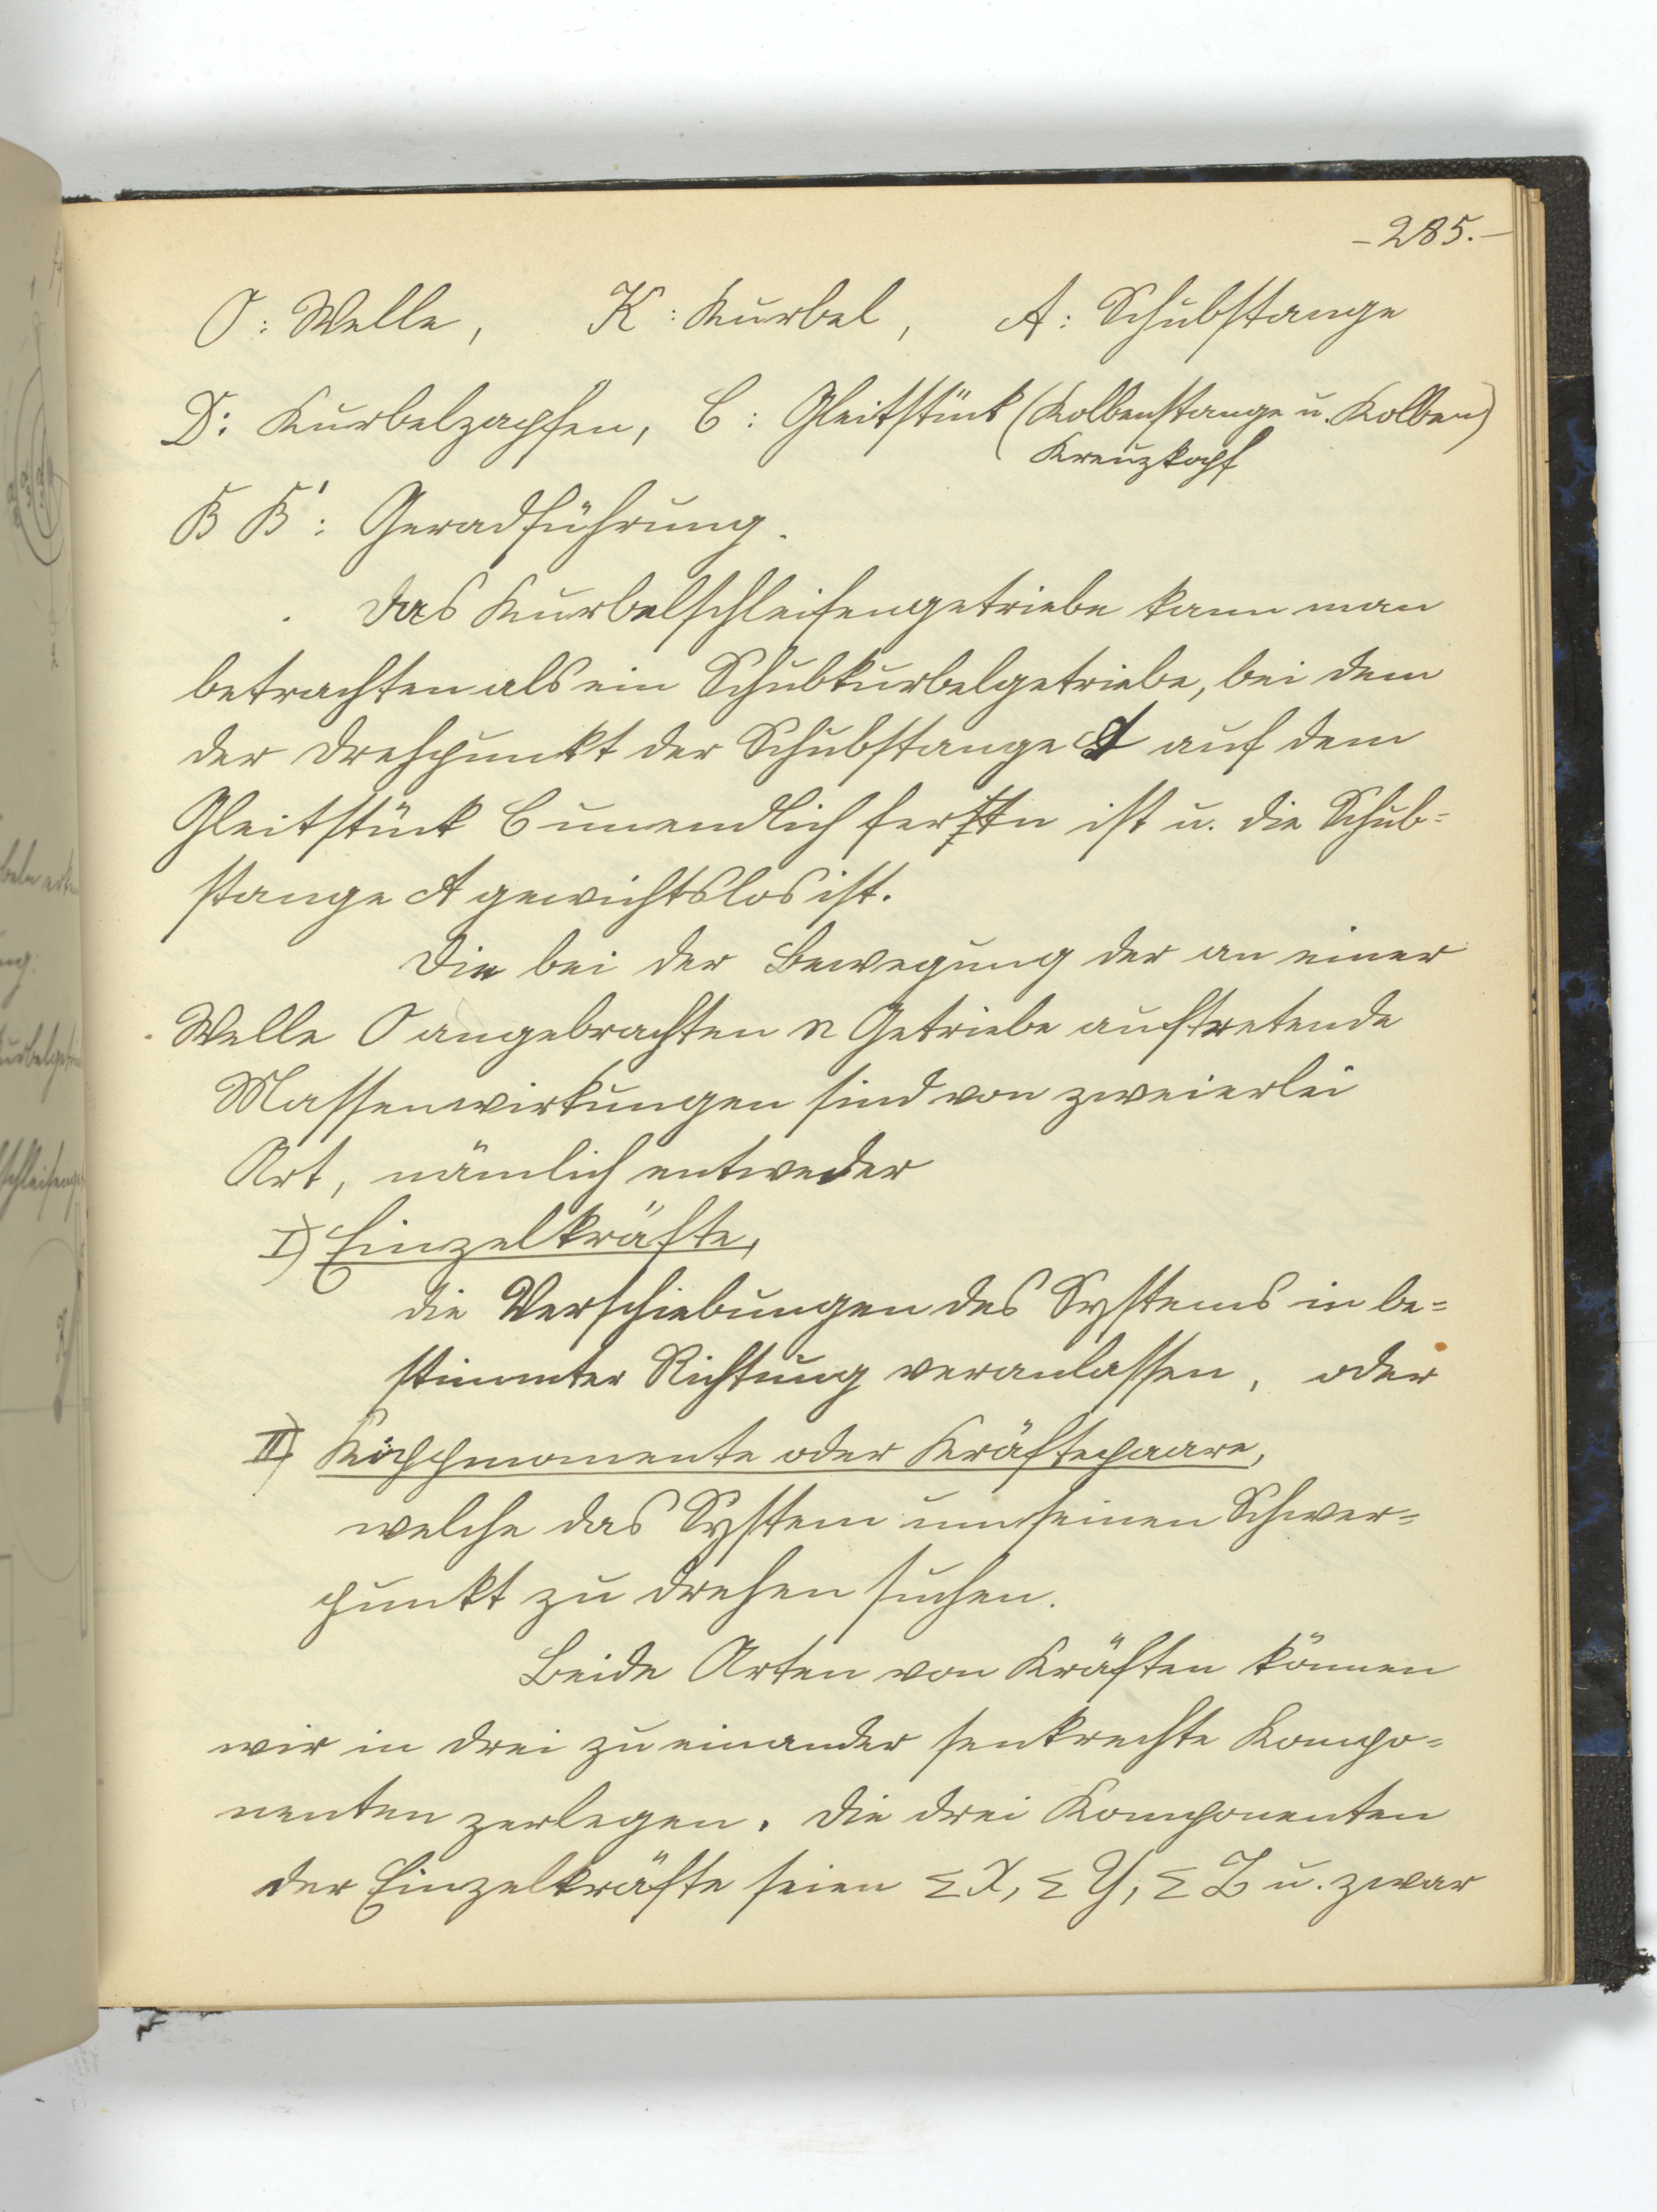 - 285. -
O : Welle, K : Kurbel, A : Schubstange
D : Kurbelzapfen, C : Gleitstück (Kolbenstange u. Kolben)
Kreuzkopf
B B' : Geradführung.
Das Kurbelschleifengetriebe kann man
betrachten als ein Schubkurbelgetriebe, bei dem
der Drehpunkt der Schubstange A auf dem
Gleitstück C unendlich fern ist u. die Schub=
stange A gewichtslos ist.
Die bei der Bewegung der an einer
Welle O angebrachten n Getriebe auftretende
Massenwirkungen sind von zweierlei
Art, nämlich entweder
I) Einzelkräfte,
die Verschiebungen des Systems in be=
stimmter Richtung veranlassen, oder
II) Kippmomente oder Kräftepaare,
welche das System um seinen Schwer=
punkt zu drehen suchen.
Beide Arten von Kräften können
wir in drei zu einander senkrechte Kompo=
nenten zerlegen. Die drei Komponenten
der Einzelkräfte seien Σ X, Σ Y, Σ Z u. zwar